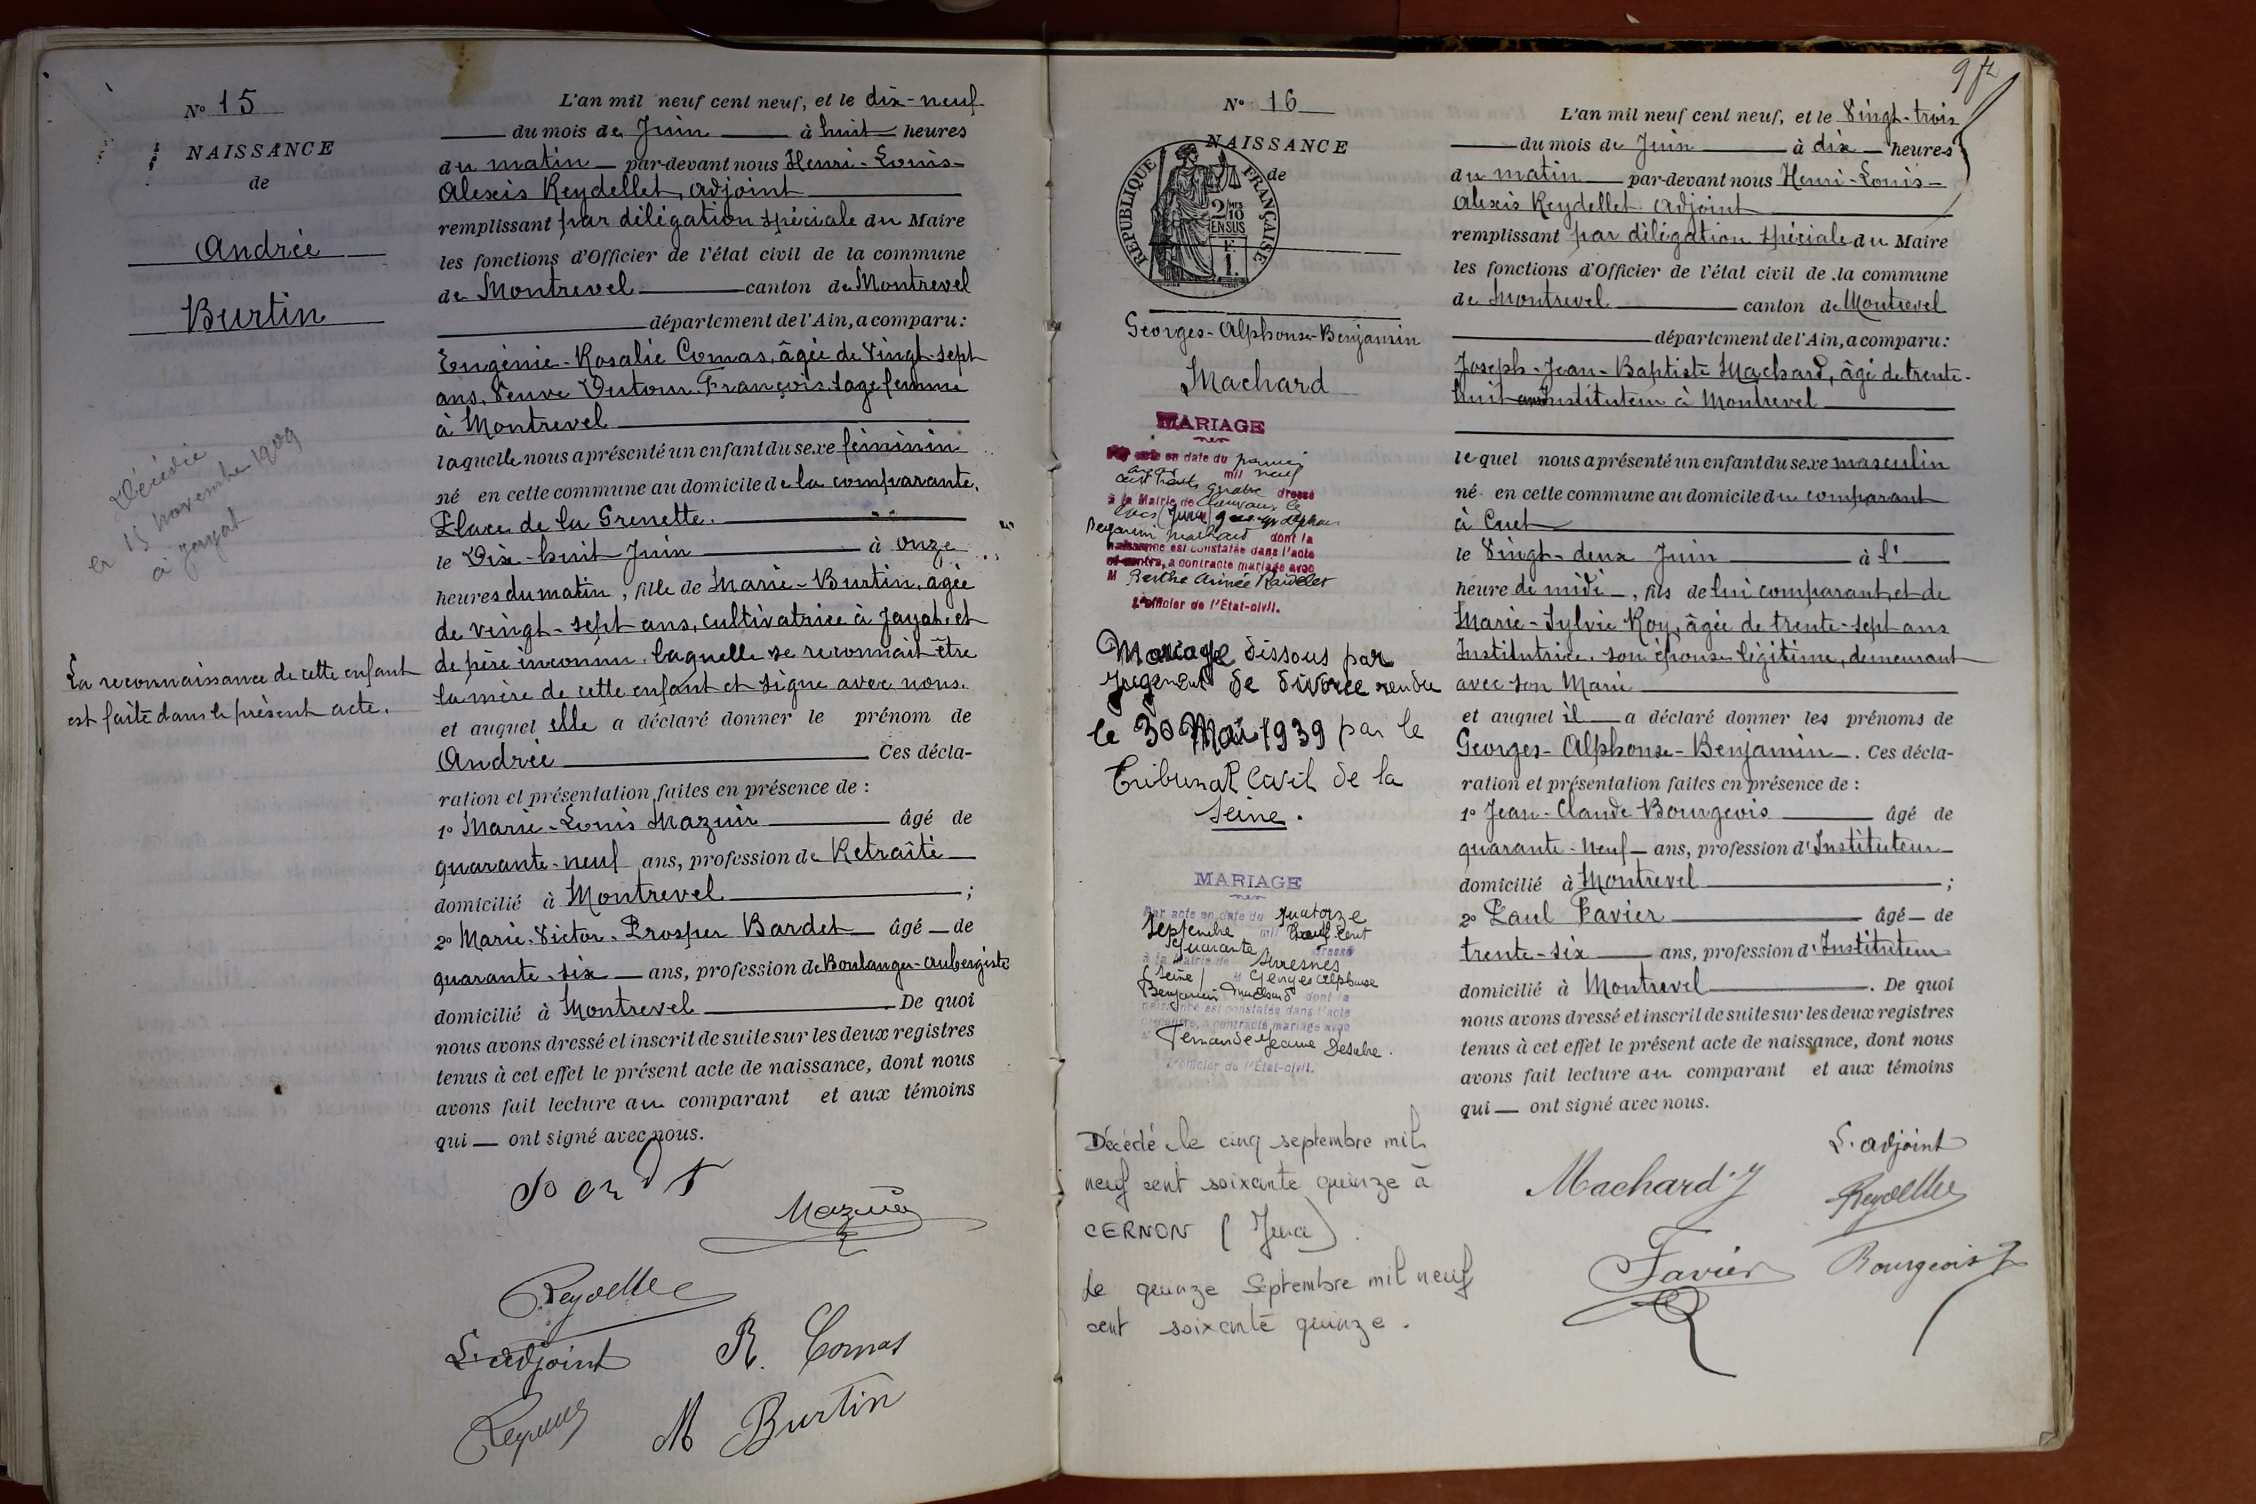 N° 15
NAISSANCE
de
Andrée
Burtin
Décédée
15 novembre 1909
à Jayat
La reconnaissance de cette enfant
est faite dans le présent acte.
L'an mil neuf cent neuf, et le dix-neuf
du mois de Juin à huit heures
du matin par-devant nous Henri-Louis-
Alexis Reydellet, adjoint
remplissant par délégation spéciale du Maire
les fonctions d'Officier de l'état civil de la commune
de Montrevel canton de Montrevel
département de l'Ain, a comparu :
Eugénie-Rosalie Comas, âgée de Vingt-sept
ans, Veuve Dutour François, sage femme
à Montrevel
laquelle nous a présenté un enfant du sexe féminin
né en cette commune au domicile de la comparante,
Place de la Grenette.
le Dix-huit Juin à onze
heures du matin, fille de Marie-Burtin, agée
de vingt-sept ans, cultivatrice à Jayat, et
de père inconnu, laquelle se reconnait être
la mère de cette enfant et signe avec nous.
et auquel elle a déclaré donner le prénom de
Andrée Ces décla-
ration et présentation faites en présence de :
1° Marie-Louis Mazuir âgé de
quarante-neuf ans, profession de Retraité
domicilié à Montrevel ;
2° Marie-Victor-Prosper Bardet âgé de
quarante-six ans, profession de Boulanger-Aubergiste
domicilié à Montrevel De quoi
nous avons dressé et inscrit de suite sur les deux registres
tenus à cet effet le présent acte de naissance, dont nous
avons fait lecture au comparant et aux témoins
qui ont signé avec nous.
Bardet
Mazuir
Reydellet
L'adjoint
R. Comas
M Burtin
9
N° 16
NAISSANCE
de
RÉPUBLIQUE FRANÇAISE
2 10
EN SUS
Georges-Alphonse-Benjamin
Machard
MARIAGE
acte en date du premier
mil neuf
cent trente quatre dressé
à la Mairie de Chaux
(Jura) Georges Alphonse
Benjamin Machard dont la
naissance est constatée dans l'acte
ci-contre, a contracté mariage avec
M Berthe Aimée
L'officier de l'Etat-civil.
Mariage dissous par
jugement de divorce rendu
le 30 Mai 1939 par le
Tribunal Civil de la
Seine.
MARIAGE
Par acte en date du quatorze
Septembre mil neuf cent
quarante dressé
à la Mairie de Suresnes
(Seine) M Georges Alphonse
Benjamin Machard dont la
naissance est constatée dans l'acte
ci-contre, a contracté mariage avec
Fernande Jeanne
L'officier de l'Etat-civil.
Décédé le cinq septembre mil
neuf cent soixante quinze à
CERNON (Jura).
Le quinze Septembre mil neuf
cent soixante quinze.
L'an mil neuf cent neuf, et le Vingt-trois
du mois de Juin à dix heures
du matin par-devant nous Henri-Louis-
Alexis Reydellet adjoint
remplissant par délégation spéciale du Maire
les fonctions d'Officier de l'état civil de la commune
de Montrevel canton de Montrevel
département de l'Ain, a comparu :
Joseph-Jean-Baptiste Machard, âgé de trente-
huit ans Instituteur à Montrevel
lequel nous a présenté un enfant du sexe masculin
né en cette commune au domicile du comparant
à Cuet
le Vingt-deux Juin à l'
heure de midi, fils de lui comparant et de
Marie-Sylvie Roy, âgée de trente-sept ans
Institutrice, son épouse légitime, demeurant
avec son Mari
et auquel il a déclaré donner les prénoms de
Georges-Alphonse-Benjamin. Ces décla-
ration et présentation faites en présence de :
1° Jean-Claude Bourgeois âgé de
quarante-neuf ans, profession d'Instituteur
domicilié à Montrevel ;
2° Paul Favier âgé de
trente-six ans, profession d'Instituteur
domicilié à Montrevel. De quoi
nous avons dressé et inscrit de suite sur les deux registres
tenus à cet effet le présent acte de naissance, dont nous
avons fait lecture au comparant et aux témoins
qui ont signé avec nous.
L'adjoint
Machard J
Reydellet
Favier
Bourgeois